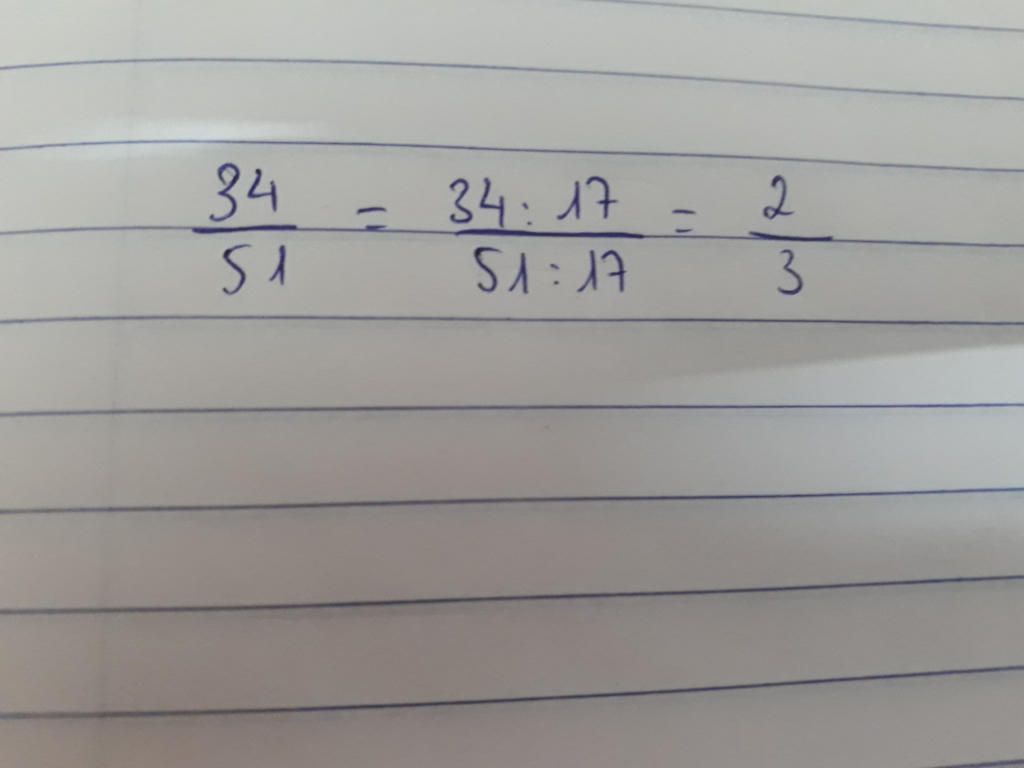 34/51 = 34:17/51:17 = 2/3